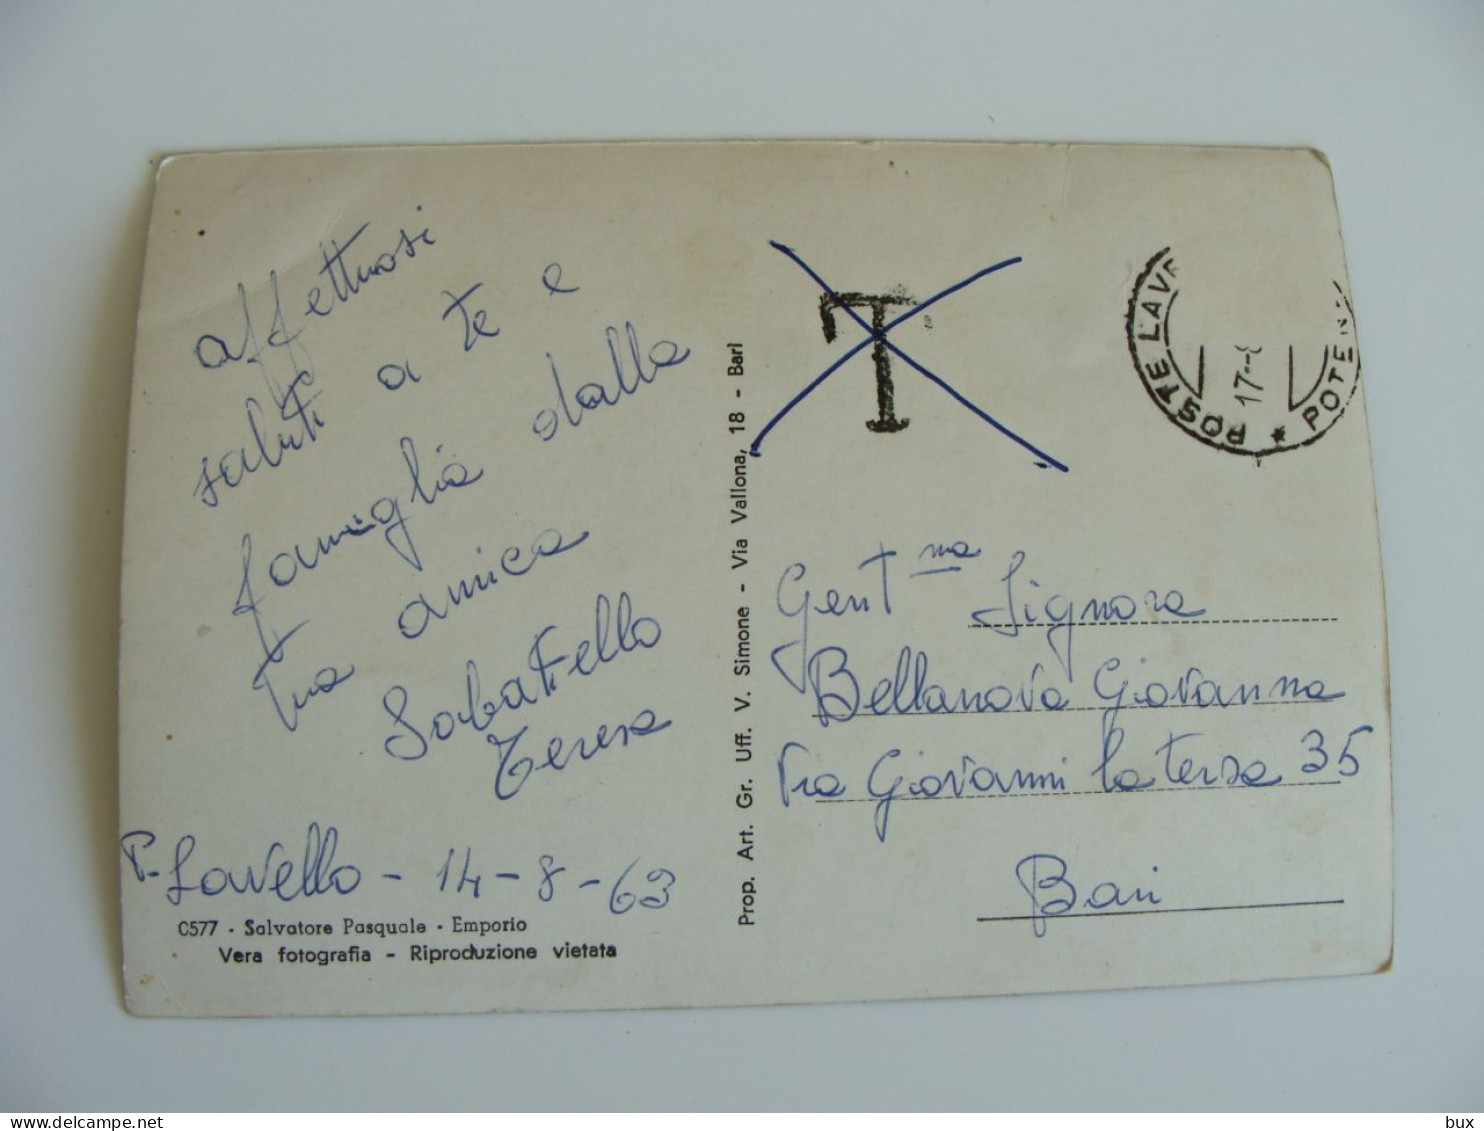 affettuosi
saluti a te e
famiglia dalla
tua amica
Sabatiello
Teresa
P. Lavello - 14 - 8 - 63
C577 - Salvatore Pasquale - Emporio
Vera fotografia - Riproduzione vietata
Prop. Art. Gr. Uff. V. Simone - Via Vallona, 18 - Bari
T
POSTE LAVE
17-8
* POTEN
Gent ma Signora
Bellanova Giovanna
Via Giovanni la terza 35
Bari
bux